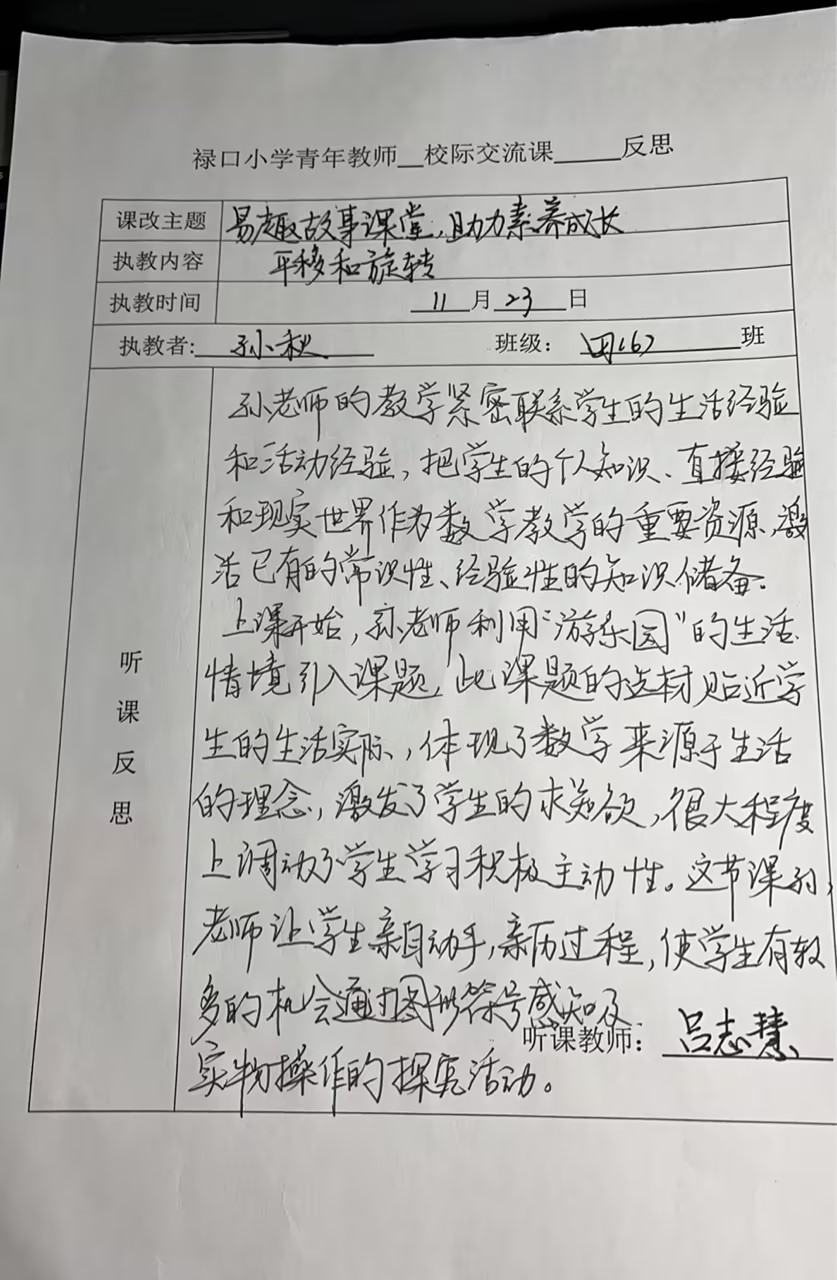 禄口小学青年教师__校际交流课_____反思
课改主题 易趣故事课堂,助力素养成长
执教内容 平移和旋转
执教时间 11月23日
执教者: 孙秋 班级: 四(6) 班
听课反思
孙老师的教学紧密联系学生的生活经验
和活动经验,把学生的个人知识、直接经验
和现实世界作为数学教学的重要资源,激
活已有的常识性、经验性的知识储备.
上课开始,孙老师利用“游乐园”的生活
情境引入课题,此课题的选材贴近学
生的生活实际,体现了数学来源于生活
的理念,激发了学生的求知欲,很大程度
上调动了学生学习积极主动性。这节课孙
老师让学生亲自动手,亲历过程,使学生有较
多的机会通过图形符号感知及
听课教师: 吕志慧
实物操作的探究活动。